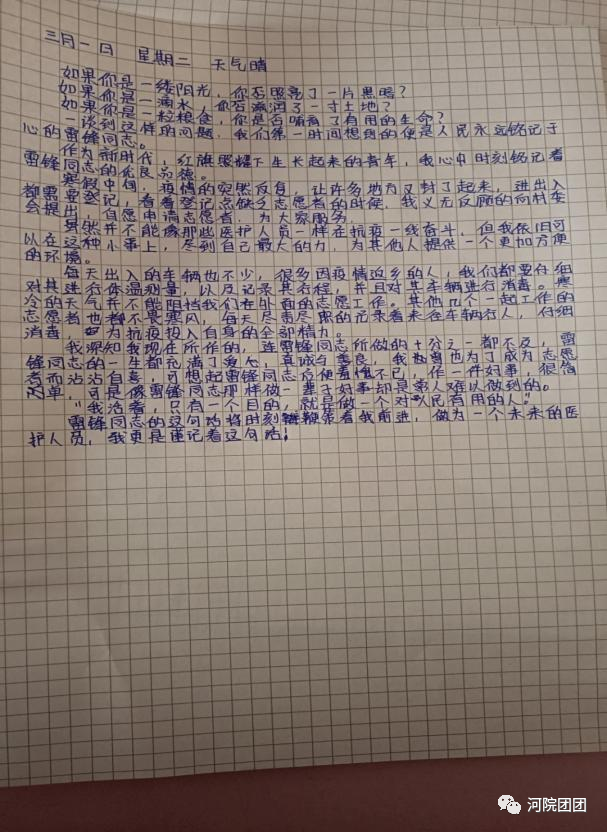 三月一日 星期二 天气晴
如果你是一缕阳光，你否照亮了一片黑暗？
如果你是一滴水，你否滋润了一寸土地？
如果你是一粒粮食，你是否哺育了有用的生命？
一谈到这样的问题，我们第一时间想到的便是人民永远铭记于
心的雷锋同志。
作为新时代，红旗照耀下生长起来的青年，我心中时刻铭记着
雷锋同志的优良品德。
寒假中旬，疫情的突然反复，让许多地方又封了起来，进出入
都需要登记，看着登记点缺乏志愿者的时候，我义无反顾的向村委
会提出，自愿申请志愿者，为大家服务。
虽然并不能像那些医护人员一样在抗疫一线奋斗，但我依旧可
以在这种小事上，尽到自己最大的力，为其他人提供一个更加方便
的环境。
每天出入的车辆也不少，很多因疫情返乡的人，我们都要仔细
对其进行体温测量，以及记录其行程，并且对其车辆进行消毒。寒
冷的天气并不能阻挡我们在外面的志愿工作。其他几个一起工作的
志愿者也都不畏寒风，每天尽责尽职的记录着来往车辆行人，仔细
消毒 为抗疫投入自身的全部精力。
我深知我现在所作的，连雷锋同志所做的十分之一都不及，雷
锋同志的一生都充满了爱心，真诚与善良，我 也为了成为志愿
者而沾沾自喜，可想起雷锋同志后便羞愧不已，作一件好事，很简
单 可是像雷锋同志那样做一辈子好事却是常人难以做到的。
“我活着，只有一个目的，就是做一个对人民有用的人。”
雷锋同志的这句话将时刻鞭策着我前进，做为一个未来的医
护人员，我更是谨记着这句话！
河院团团